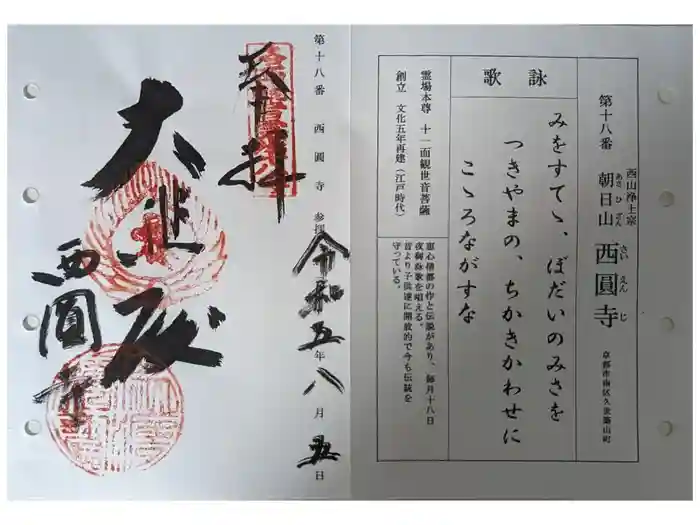 西山浄土宗
第十八番 朝日山 西圓寺
あさひざん さいえんじ
京都市南区久世築山町
詠歌
みをすてゝ、ぼだいのみさを
つきやまの、ちかきかわせに
こゝろながすな
霊場本尊 十一面観世音菩薩
創立 文化五年再建(江戸時代)
恵心僧都の作と伝説があり、毎月十八日
夜御詠歌を唱える。
昔より子供達に開放的で今も伝統を
守っている。
第十八番 西圓寺 参拝 令和五年八月五日
奉拝
大悲殿
西圓寺